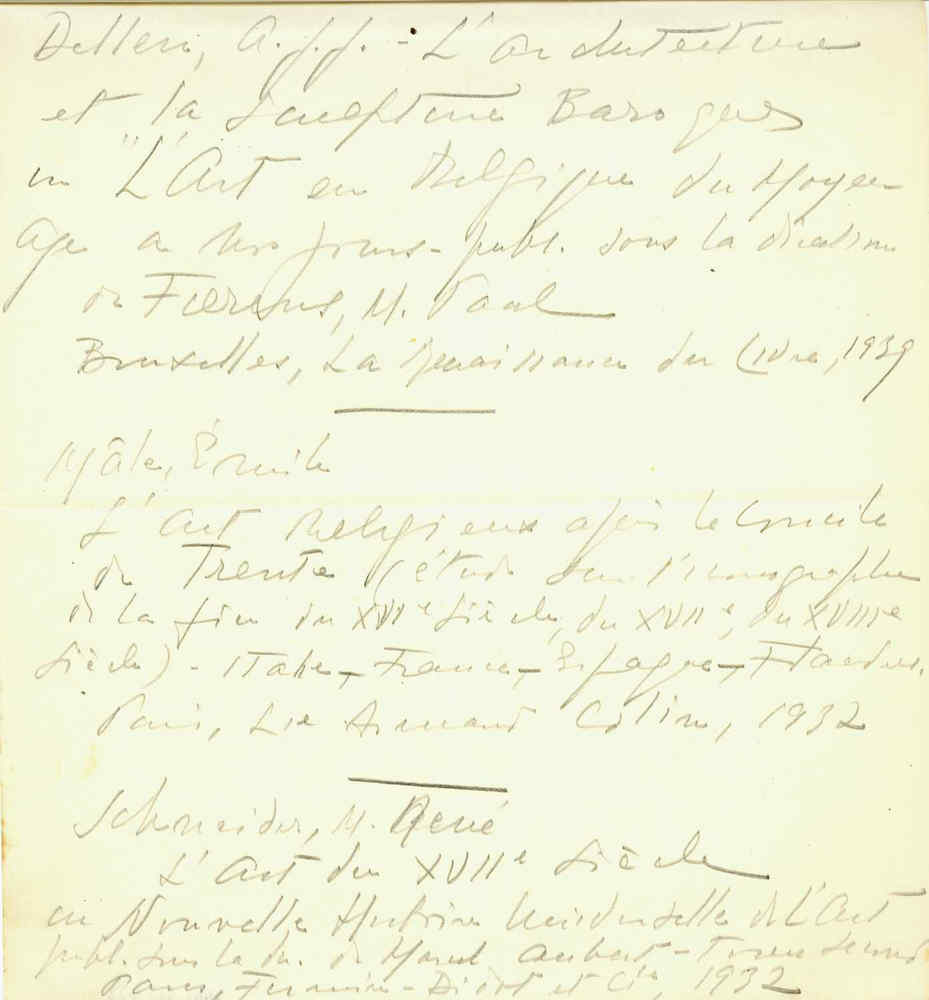 Delleri, A. J. J. - L'architecture
et la sculpture Baroques
in "L'Art en Belgique du Moyen
Age a nos jours - publ. sous la direction
de Fierens, M. Paul
Bruxelles, La Renaissance du Livre, 1939
Mâle, Émile
L'Art Religieux après le Concile
de Trente (étude sur l'iconographie
de la fin du XVIe siècle, du XVIIe, du XVIIIe
siècle) - Italie - France - Espagne - Flandres.
Paris, Lie Armand Colin, 1932
Schneider, M. René
L'Art du XVIIe siècle
in Nouvelle Histoire Universelle de L'Art
publ. sous la dir. de Marcel Aubert - Tome second
Paris, Firmin - Didot et Cie, 1932